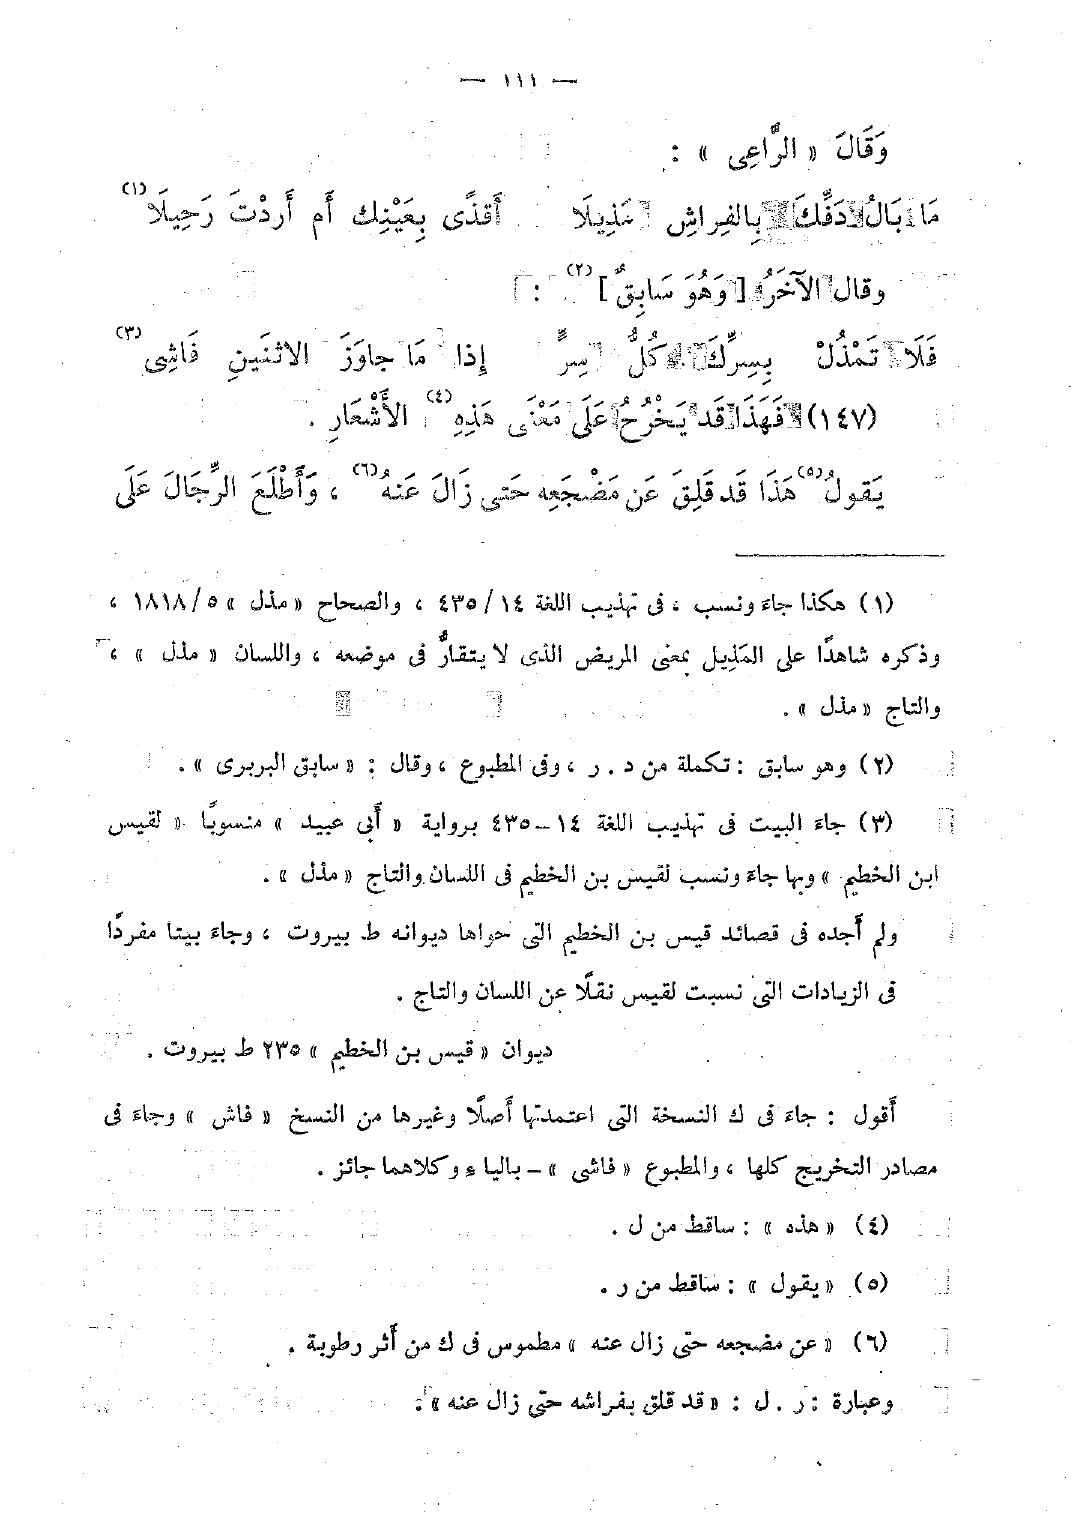 — ١١١ —
وَقَالَ « الرَّاعِى » :
مَا بَالُ دَفِّكَ بِالفِراشِ مَذِيلَا    أَقذًى بِعَيْنِك أَم أَردْتَ رَحِيلَا (١)
وقال الآخَرُ [ وَهُوَ سَابِقٌ ] (٢) :
فَلَا تَمْذُلْ بِسِرِّكَ كُلُّ سِرٍّ    إِذا مَا جاوَزَ الاثنَينِ فَاشِى (٣)
(١٤٧) فَهَذَا قَد يَخْرُجُ عَلَى مَعْنَى هَذِهِ (٤) الأَشْعَارِ .
يَقولُ (٥) هَذَا قَد قَلِقَ عَن مَضْجَعِه حَتى زَالَ عَنهُ (٦) ، وَأَطْلَعَ الرِّجَالَ عَلَى
(١) هكذا جاء ونسب ، فى تهذيب اللغة ١٤/ ٤٣٥ ، والصحاح « مذل » ٥/ ١٨١٨ ،
وذكره شاهدًا على المَذِيل بمعنى المريض الذى لا يتقارُّ فى موضعه ، واللسان « مذل » ،
والتاج « مذل » .
(٢) وهو سابق : تكملة من د . ر ، وفى المطبوع ، وقال : « سابق البربرى » .
(٣) جاء البيت فى تهذيب اللغة ١٤–٤٣٥ برواية « أَبى عبيد » منسوبًا « لقيس
ابن الخطيم » وبها جاء ونسب لقيس بن الخطيم فى اللسان والتاج « مذل » .
ولم أَجده فى قصائد قيس بن الخطيم التى حواها ديوانه ط بيروت ، وجاء بيتا مفردًا
فى الزيادات التى نسبت لقيس نقلًا عن اللسان والتاج .
ديوان « قيس بن الخطيم » ٢٣٥ ط بيروت .
أَقول : جاء فى ك النسخة التى اعتمدتها أَصلًا وغيرها من النسخ « فاش » وجاء فى
مصادر التخريج كلها ، والمطبوع « فاشى » – بالياء وكلاهما جائز .
(٤) « هذه » : ساقط من ل .
(٥) « يقول » : ساقط من ر .
(٦) « عن مضجعه حتى زال عنه » مطموس فى ك من أَثر رطوبة .
وعبارة : ر . ل : « قد قلق بفراشه حتى زال عنه » .